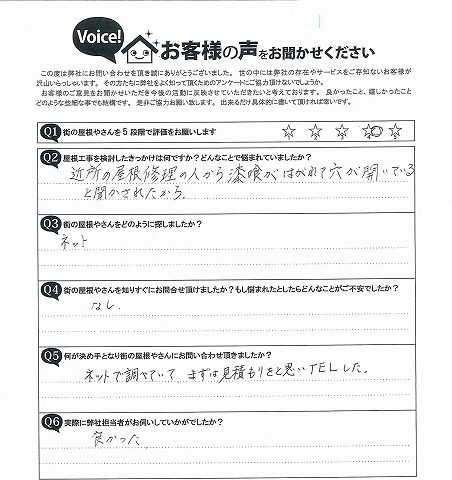 Voice!
お客様の声をお聞かせください
この度は弊社にお問い合わせを頂き誠にありがとうございました。世の中には弊社の存在やサービスをご存知ないお客様が
沢山いらっしゃいます。その方たちに弊社をよく知って頂くためのアンケートにご協力頂けないでしょうか。
お客様のご意見をお聞かせいただき今後の活動に反映させていただきたいと考えております。良かったこと、嬉しかったこと
どのような些細な事でも結構です。是非ご協力お願い致します。出来るだけ具体的に書いて頂ければ幸いです。
Q1 街の屋根やさんを5段階で評価をお願いします ☆ ☆ ☆ ☆ ☆
Q2 屋根工事を検討したきっかけは何ですか?どんなことで悩まれていましたか?
近所の屋根修理の人から漆喰がはがれて穴が開いている
と聞かされたから。
Q3 街の屋根やさんをどのように探しましたか?
ネット
Q4 街の屋根やさんを知りすぐにお問合せ頂けましたか?もし悩まれたとしたらどんなことがご不安でしたか?
なし。
Q5 何が決め手となり街の屋根やさんにお問い合わせ頂きましたか?
ネットで調べていて まずは見積もりをと思いTELした。
Q6 実際に弊社担当者がお伺いしていかがでしたか?
良かった